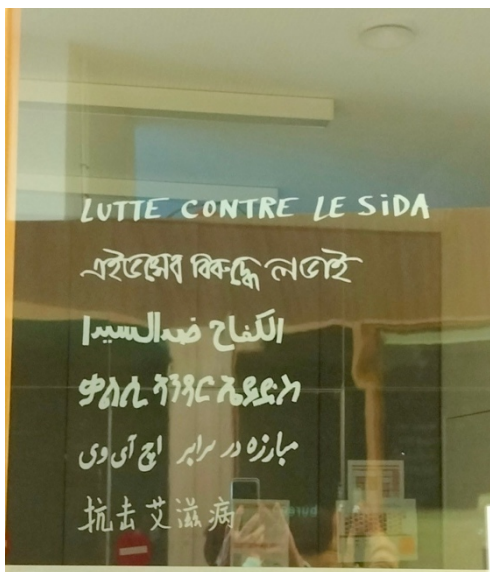 LUTTE CONTRE LE SiDA
এইডসের বিরুদ্ধে লড়াই
الكفاح ضد السيدا
مبارزه در برابر اچ آی وی
抗击艾滋病